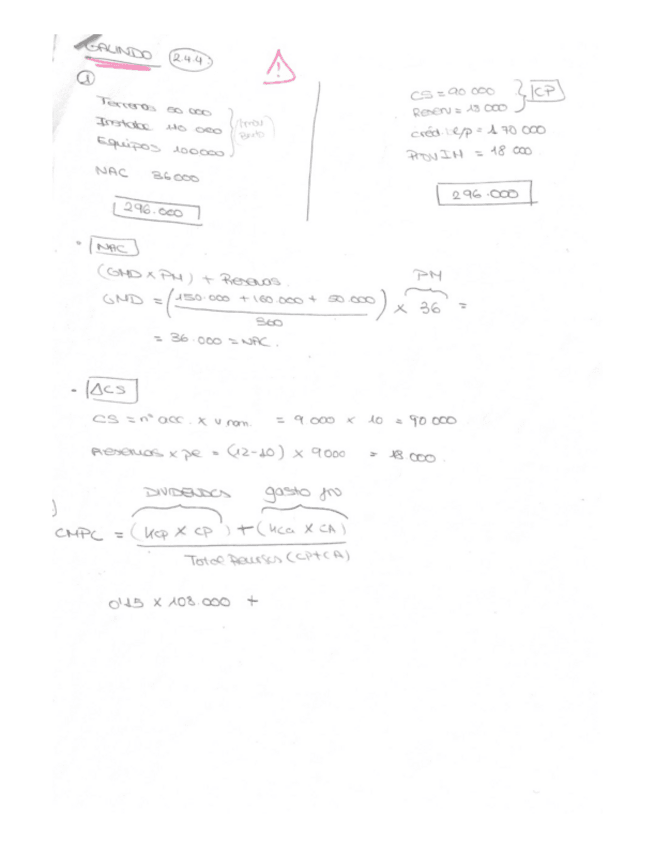 GALINDO 2.4.4.
!
①
Terrenos 50 000
Instalac 110 000
Equipos 100000
NAC 36000
296.000
CS = 90 000
Reserv = 18 000
CP
créd. l/p = 170 000
PROV IM = 18 000
296.000
NAC
(GMD x PM) + Reservas.
GMD = (150.000 + 160.000 + 50.000 / 360) x 36 =
PM
= 36.000 = NAC.
- ΔCS
CS = nº acc. x v nom. = 9 000 x 10 = 90 000
Reservas x pe = (12-10) x 9000 = 18 000.
)
DIVIDENDOS gasto fro
CMPC = (Kcp x CP) + (Kca x CA)
Total Recursos (CP+CA)
0'15 x 108.000 +